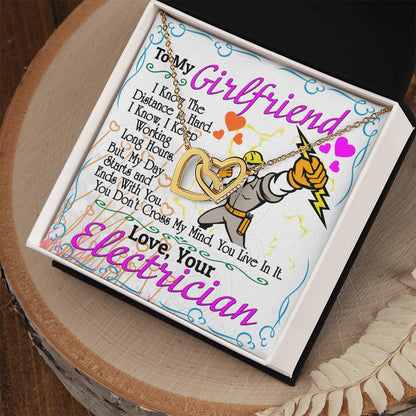 To My
Girlfriend
I Know The
Distance Is Hard.
I Know, I Keep
Working
Long Hours.
But, My Day
Starts and
Ends With You.
You Don't Cross My Mind, You Live In It.
Love, Your
Electrician